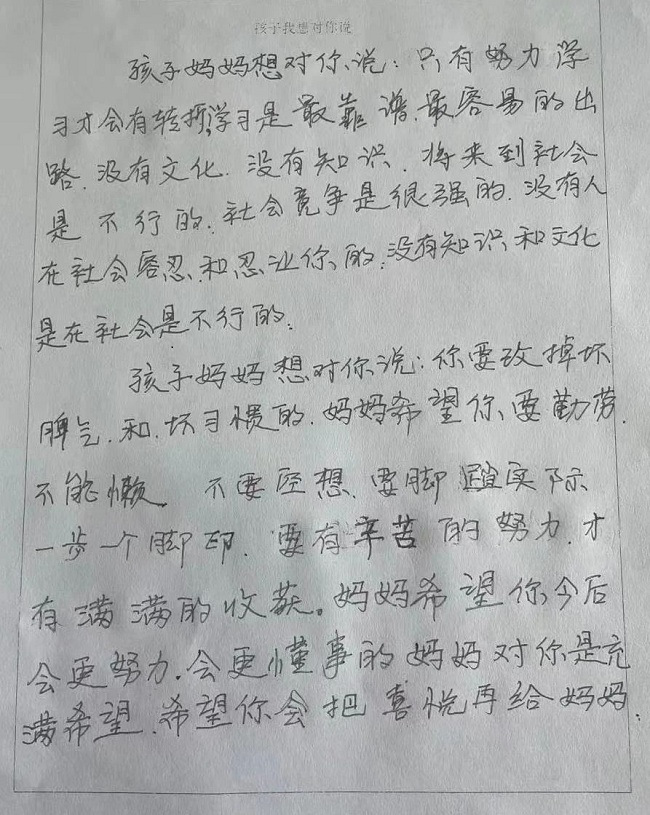 孩子我想对你说
孩子妈妈想对你说：只有努力学
习才会有转折，学习是最靠谱、最容易的出
路、没有文化、没有知识、将来到社会
是不行的、社会竞争是很强的、没有人
在社会容忍、和忍让你的、没有知识和文化
是在社会是不行的。
孩子妈妈想对你说：你要改掉坏
脾气、和、坏习惯的、妈妈希望你要勤劳、
不能懒、不要空想、要脚踏实际
一步一个脚印、要有辛苦的努力、才
有满满的收获。妈妈希望你今后
会更努力、会更懂事的妈妈对你是充
满希望、希望你会把喜悦再给妈妈、